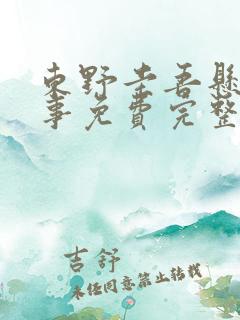 東野圭吾懸
事免費完整
吉舒
未经同意禁止转载